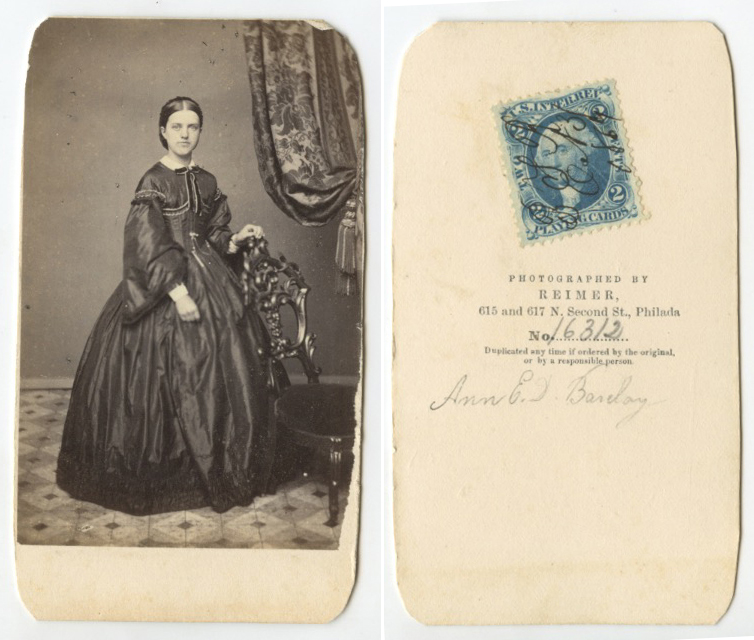 U.S. INTER. REV.
TWO
CENTS
2
2
PLAYING CARDS
PHOTOGRAPHED BY
REIMER,
615 and 617 N. Second St., Philada
No. 16312
Duplicated any time if ordered by the original,
or by a responsible person.
Ann E. D. Barclay